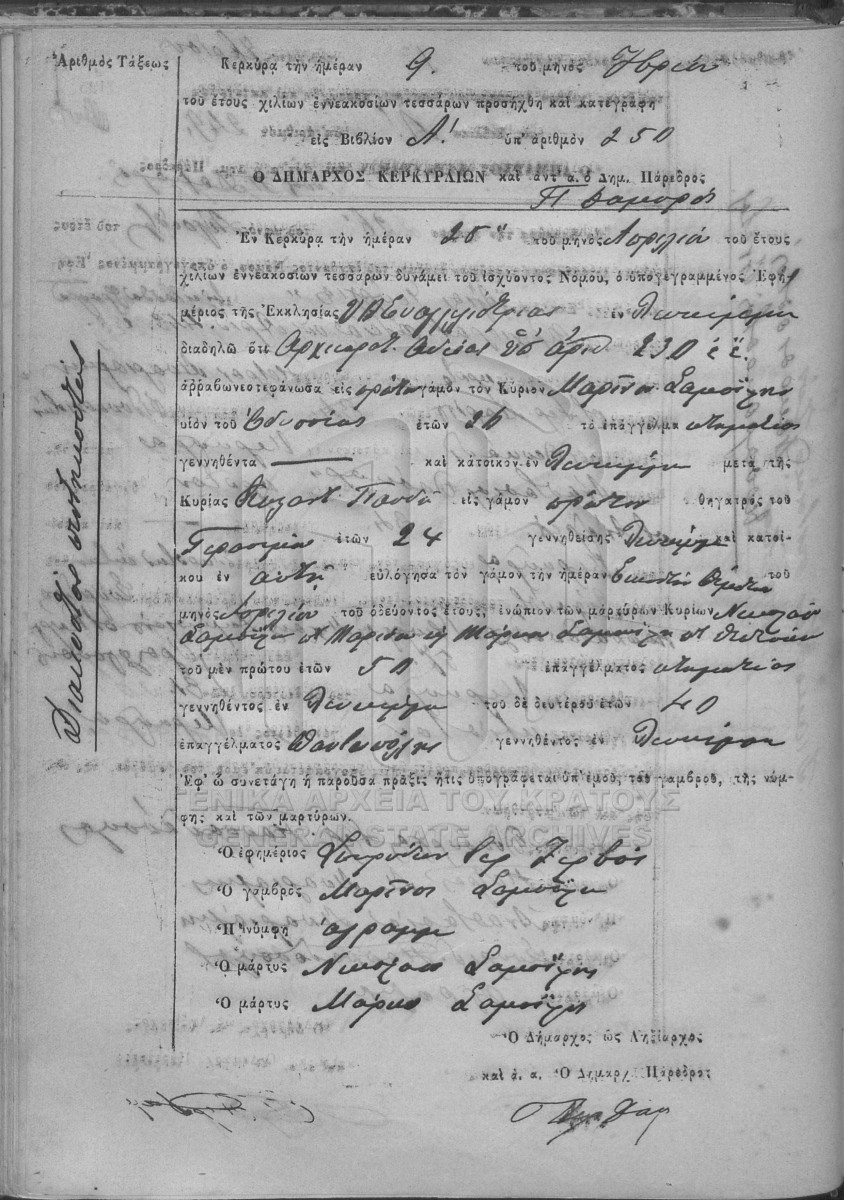 Ἀριθμὸς Τάξεως
Διακόσιος πεντηκοστός
Κερκύρα τὴν ἡμέραν 9. τοῦ μηνὸς
τοῦ ἔτους χιλίων ἐννεακοσίων τεσσάρων προσήχθη καὶ κατεγράφη
εἰς Βιβλίον Α! ὑπ' ἀριθμὸν 250
Ο ΔΗΜΑΡΧΟΣ ΚΕΡΚΥΡΑΙΩΝ καὶ ἀντ' α. ὁ Δημ. Πάρεδρος
Ἐν Κερκύρᾳ τὴν ἡμέραν 25 τοῦ μηνὸς Ἀπριλίου τοῦ ἔτους
χιλίων ἐννεακοσίων τεσσάρων δυνάμει τοῦ ἰσχύοντος Νόμου, ὁ ὑπογεγραμμένος Ἐφη-
μέριος τῆς Ἐκκλησίας Υ Θ Εὐαγγελιστρίας ἐν Λευκίμμη
διαδηλῶ ὅτι Ἀρχιερατ. Ἀδείας ὑπ' ἀριθ. 230 ἐ. ἔ.
ἀῤῥαβωνεοτεφάνωσα εἰς πρῶτον γάμον τὸν Κύριον Μαρῖνον Σαμοΐλην
υἱὸν τοῦ Ὀδυσσέως ἐτῶν 26 τὸ ἐπάγγελμα κτηματίας
γεννηθέντα — καὶ κάτοικον ἐν Λευκίμμη μετὰ τῆς
Κυρίας εἰς γάμον πρῶτον θηγατρὸς τοῦ
Γερασίμου ἐτῶν 24 γεννηθείσης Λευκίμμη καὶ κατοί-
κου ἐν αὐτῇ εὐλόγησα τὸν γάμον τὴν ἡμέραν Εἰκοστὴν τοῦ
μηνὸς Ἀπριλίου τοῦ ὁδεύοντος ἔτους, ἐνώπιον τῶν μαρτύρων Κυρίων Νικολάου
Σαμοΐλη Μαρίνου κ Μάρκου Σαμοΐλη
τοῦ μὲν πρώτου ἐτῶν 50 ἐπαγγέλματος κτηματίας
γεννηθέντος ἐν Λευκίμμη τοῦ δὲ δευτέρου ἐτῶν 40
ἐπαγγέλματος Παντοπώλης γεννηθέντος ἐν Λευκίμμη
Ἐφ' ᾧ συνετάγη ἡ παροῦσα πρᾶξις ἥτις ὑπογράφεται ὑπ' ἐμοῦ, τοῦ γαμβροῦ, τῆς νύμ-
φης καὶ τῶν μαρτύρων.
ΓΕΝΙΚΑ ΑΡΧΕΙΑ ΤΟΥ ΚΡΑΤΟΥΣ
GENERAL STATE ARCHIVES
Ὁ ἐφημέριος Σπυρίδων Ἱερ. Ζερβός
Ὁ γαμβρὸς Μαρῖνος Σαμοΐλη
Ἡ νύμφη ἀγράμμ
Ὁ μάρτυς Νικόλαος Σαμοΐλης
Ὁ μάρτυς Μάρκο Σαμοΐλης
Ὁ Δήμαρχος ὡς Ληξίαρχος
καὶ ἀ. α. Ὁ Δημαρχ. Πάρεδρος